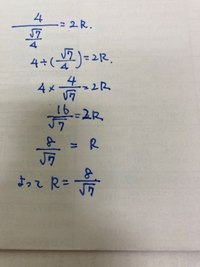 4/(√7/4) = 2R.
4÷(√7/4) = 2R.
4 × 4/√7 = 2R
16/√7 = 2R
8/√7 = R
よって R = 8/√7